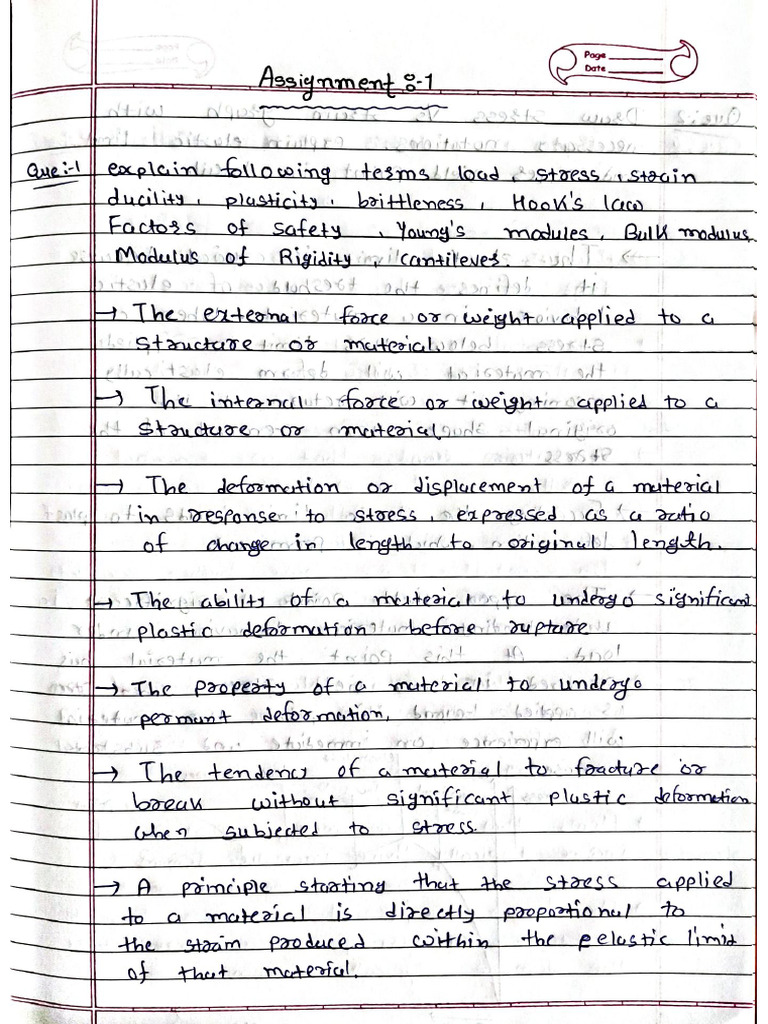 Assignment :-1
Page
Date
Que:-1 explain following terms load, stress, strain
ducility, plasticity, brittleness, Hook's law
Factors of safety, Young's modules, Bulk modulus,
Modulus of Rigidity, cantilever
→ The external force or weight applied to a
structure or material.
→ The internal force or weight applied to a
structure or material
→ The deformation or displacement of a material
in response to stress, expressed as a ratio
of change in length to original length.
→ The ability of a material to undergo significant
plastic deformation before rupture
→ The property of a material to undergo
permant deformation,
→ The tendency of a material to fracture or
break without significant plastic deformation
when subjected to stress.
→ A principle starting that the stress applied
to a material is directly proportional to
the strain produced within the pelastic limit
of that material.